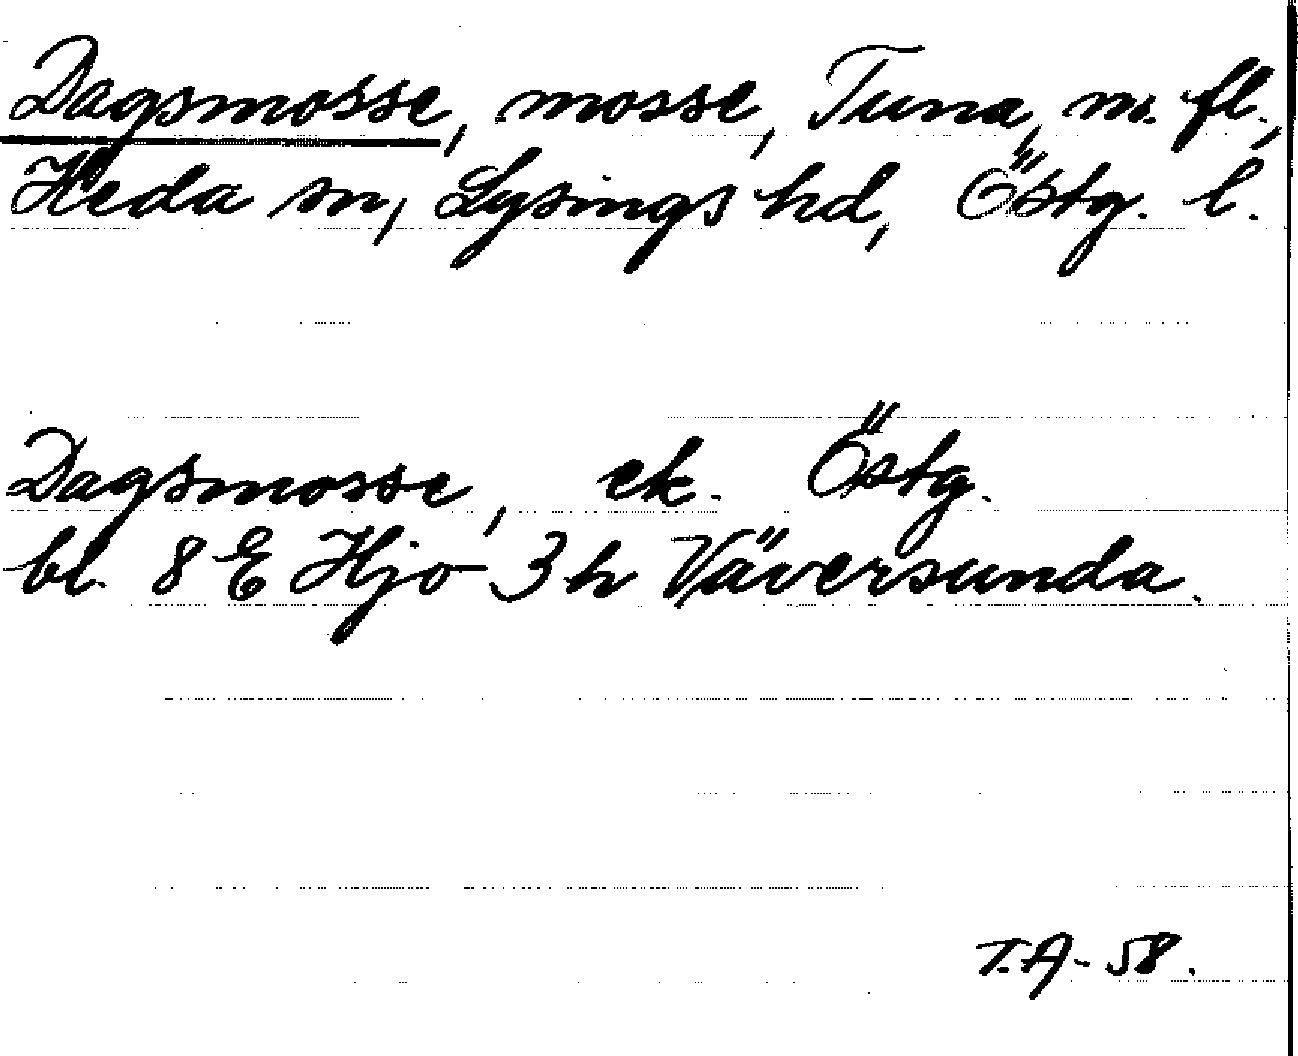 Dagsmosse, mosse, Tuna, m. fl.,
Heda sn, Lysings hd, Östg. l.
Dagsmosse, ek. Östg.
bl. 8 E Hjo 3 h Väversunda.
T.A - 58.